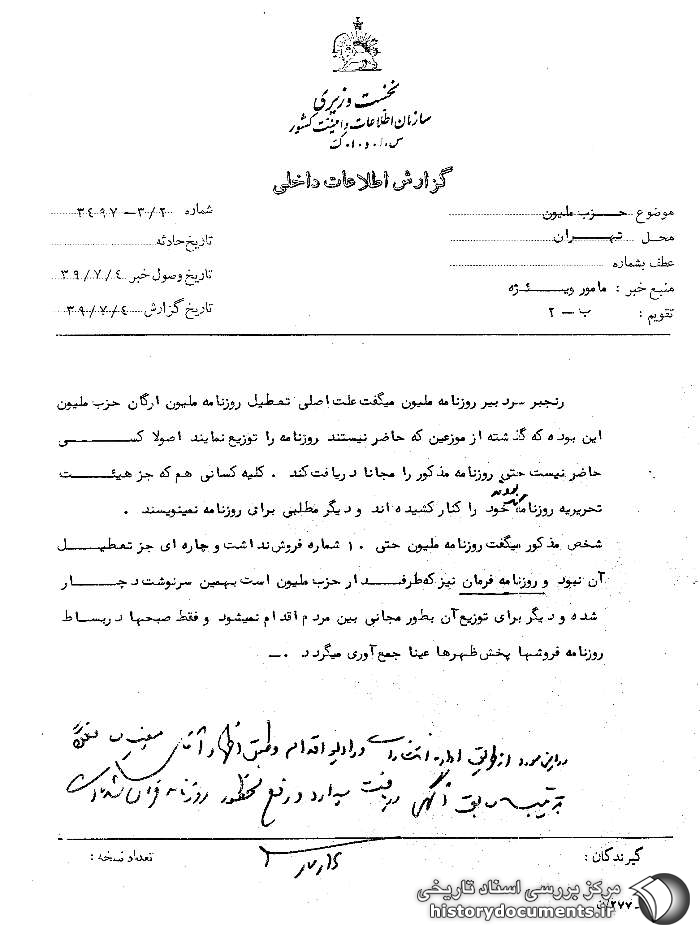 نخست وزیری
سازمان اطلاعات و امنیت کشور
س.ا.و.ا.ک
گزارش اطلاعات داخلی
موضوع حزب ملیون
شماره ۳/۲۰ - ۳٤۹۷
محل تهران
تاریخ حادثه
عطف بشماره
تاریخ وصول خبر ۳۹/۷/٤
منبع خبر : مامور ویژه
تاریخ گزارش ۳۹/۷/٤
تقویم : ب - ۲
رنجبر سردبیر روزنامه ملیون میگفت علت اصلی تعطیل روزنامه ملیون ارگان حزب ملیون
این بوده که گذشته از موزعین که حاضر نیستند روزنامه را توزیع نمایند اصولا کسی
حاضر نیست حتی روزنامه مذکور را مجانا دریافت کند . کلیه کسانی هم که جز هیئت
تحریریه روزنامه بودند خود را کنار کشیده اند و دیگر مطلبی برای روزنامه نمینویسند .
شخص مذکور میگفت روزنامه ملیون حتی ۱۰ شماره فروش نداشت و چاره ای جز تعطیل
آن نبود و روزنامه فرمان نیز که طرفدار حزب ملیون است بهمین سرنوشت دچار
شده و دیگر برای توزیع آن بطور مجانی بین مردم اقدام نمیشود و فقط صبحها در بساط
روزنامه فروشها پخش ظهرها عینا جمع آوری میگردد .-
در این مورد از طریق اداره انتشارات و رادیو اقدام و طبق اظهار آقای
روزنامه فرمان
گیرندگان :
تعداد نسخه :
۲۷۷
مرکز بررسی اسناد تاریخی
historydocuments.ir